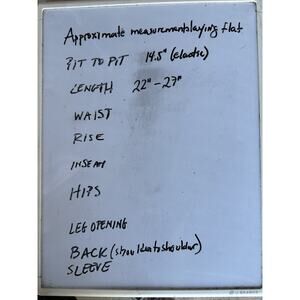 Approximate measurements laying flat
PIT TO PIT 14.5" (elastic)
LENGTH 22" - 27"
WAIST
RISE
INSEAM
HIPS
LEG OPENING
BACK (shoulder to shoulder)
SLEEVE